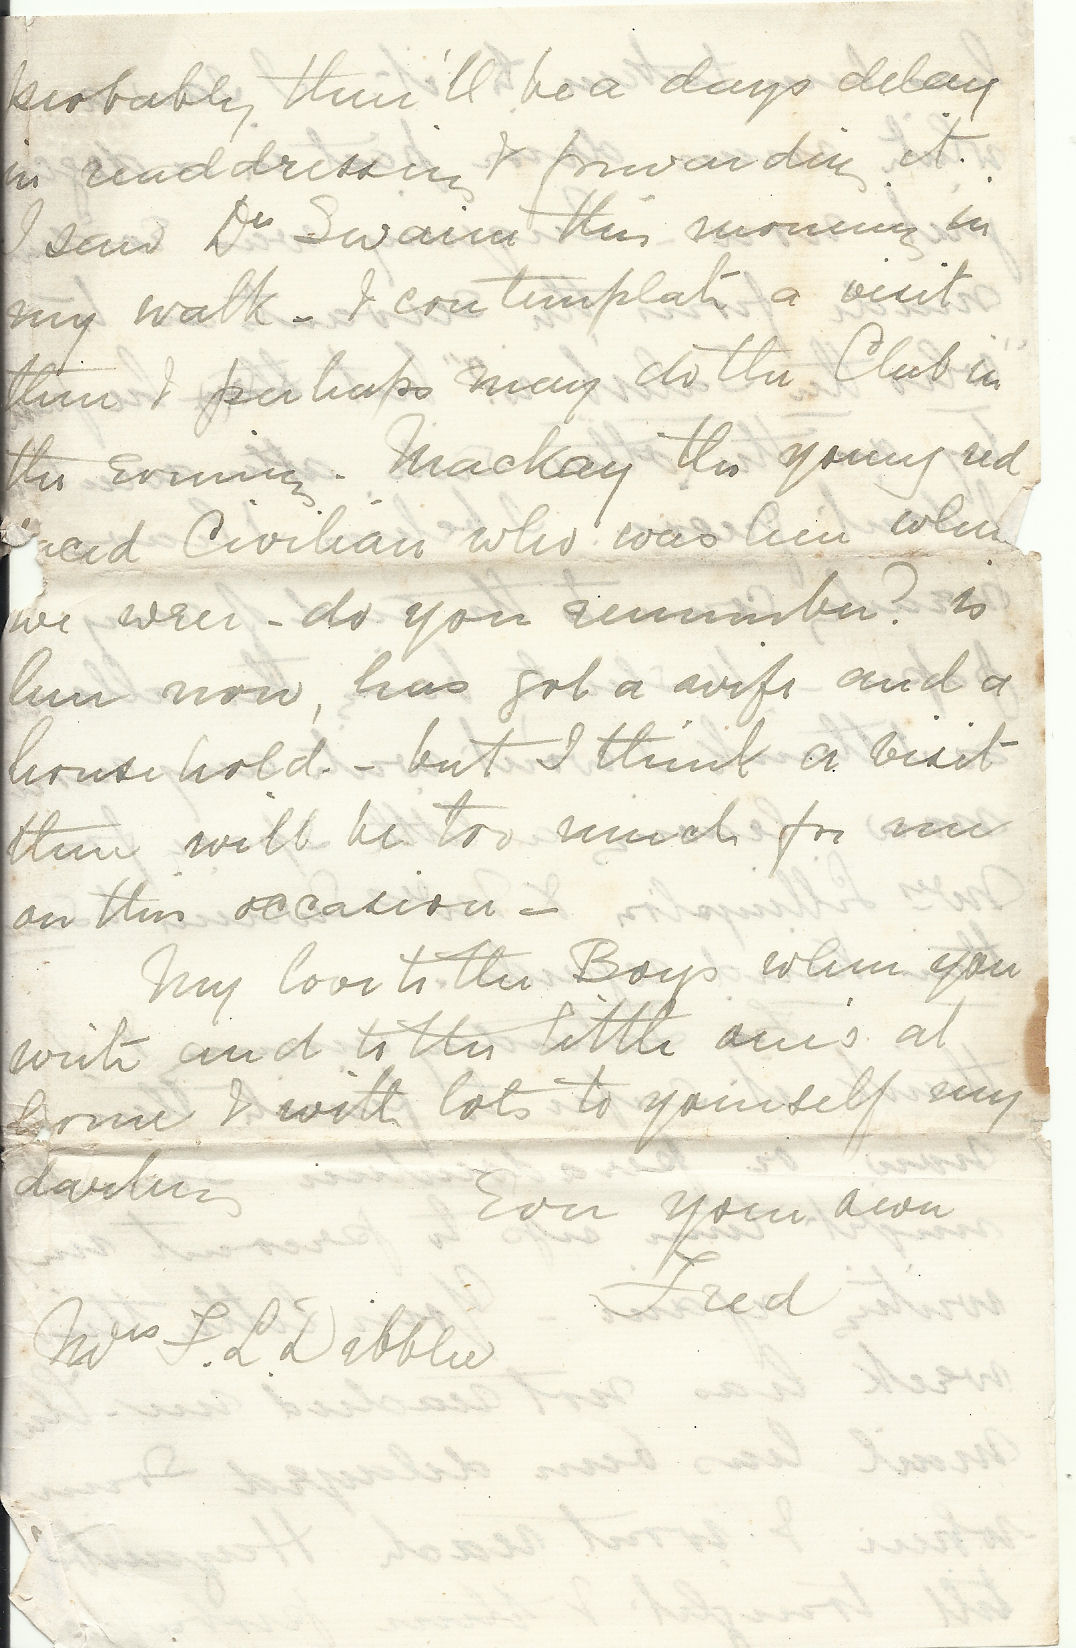 probably there'll be a days delay
in readdressing & forwarding it.
I saw Dr Swaine this morning in
my walk - I contemplate a visit
there & perhaps may do the Club in
the Evening. Mackay the young red
faced Civilian who was here when
we were - do you remember? is
here now, has got a wife and a
household. - but I think a visit
there will be too much for me
on this occasion -
My love to the Boys when you
write and to the little ones at
home & with lots to yourself my
darling
Ever your own
Fred
Mrs F. L. Dibblee